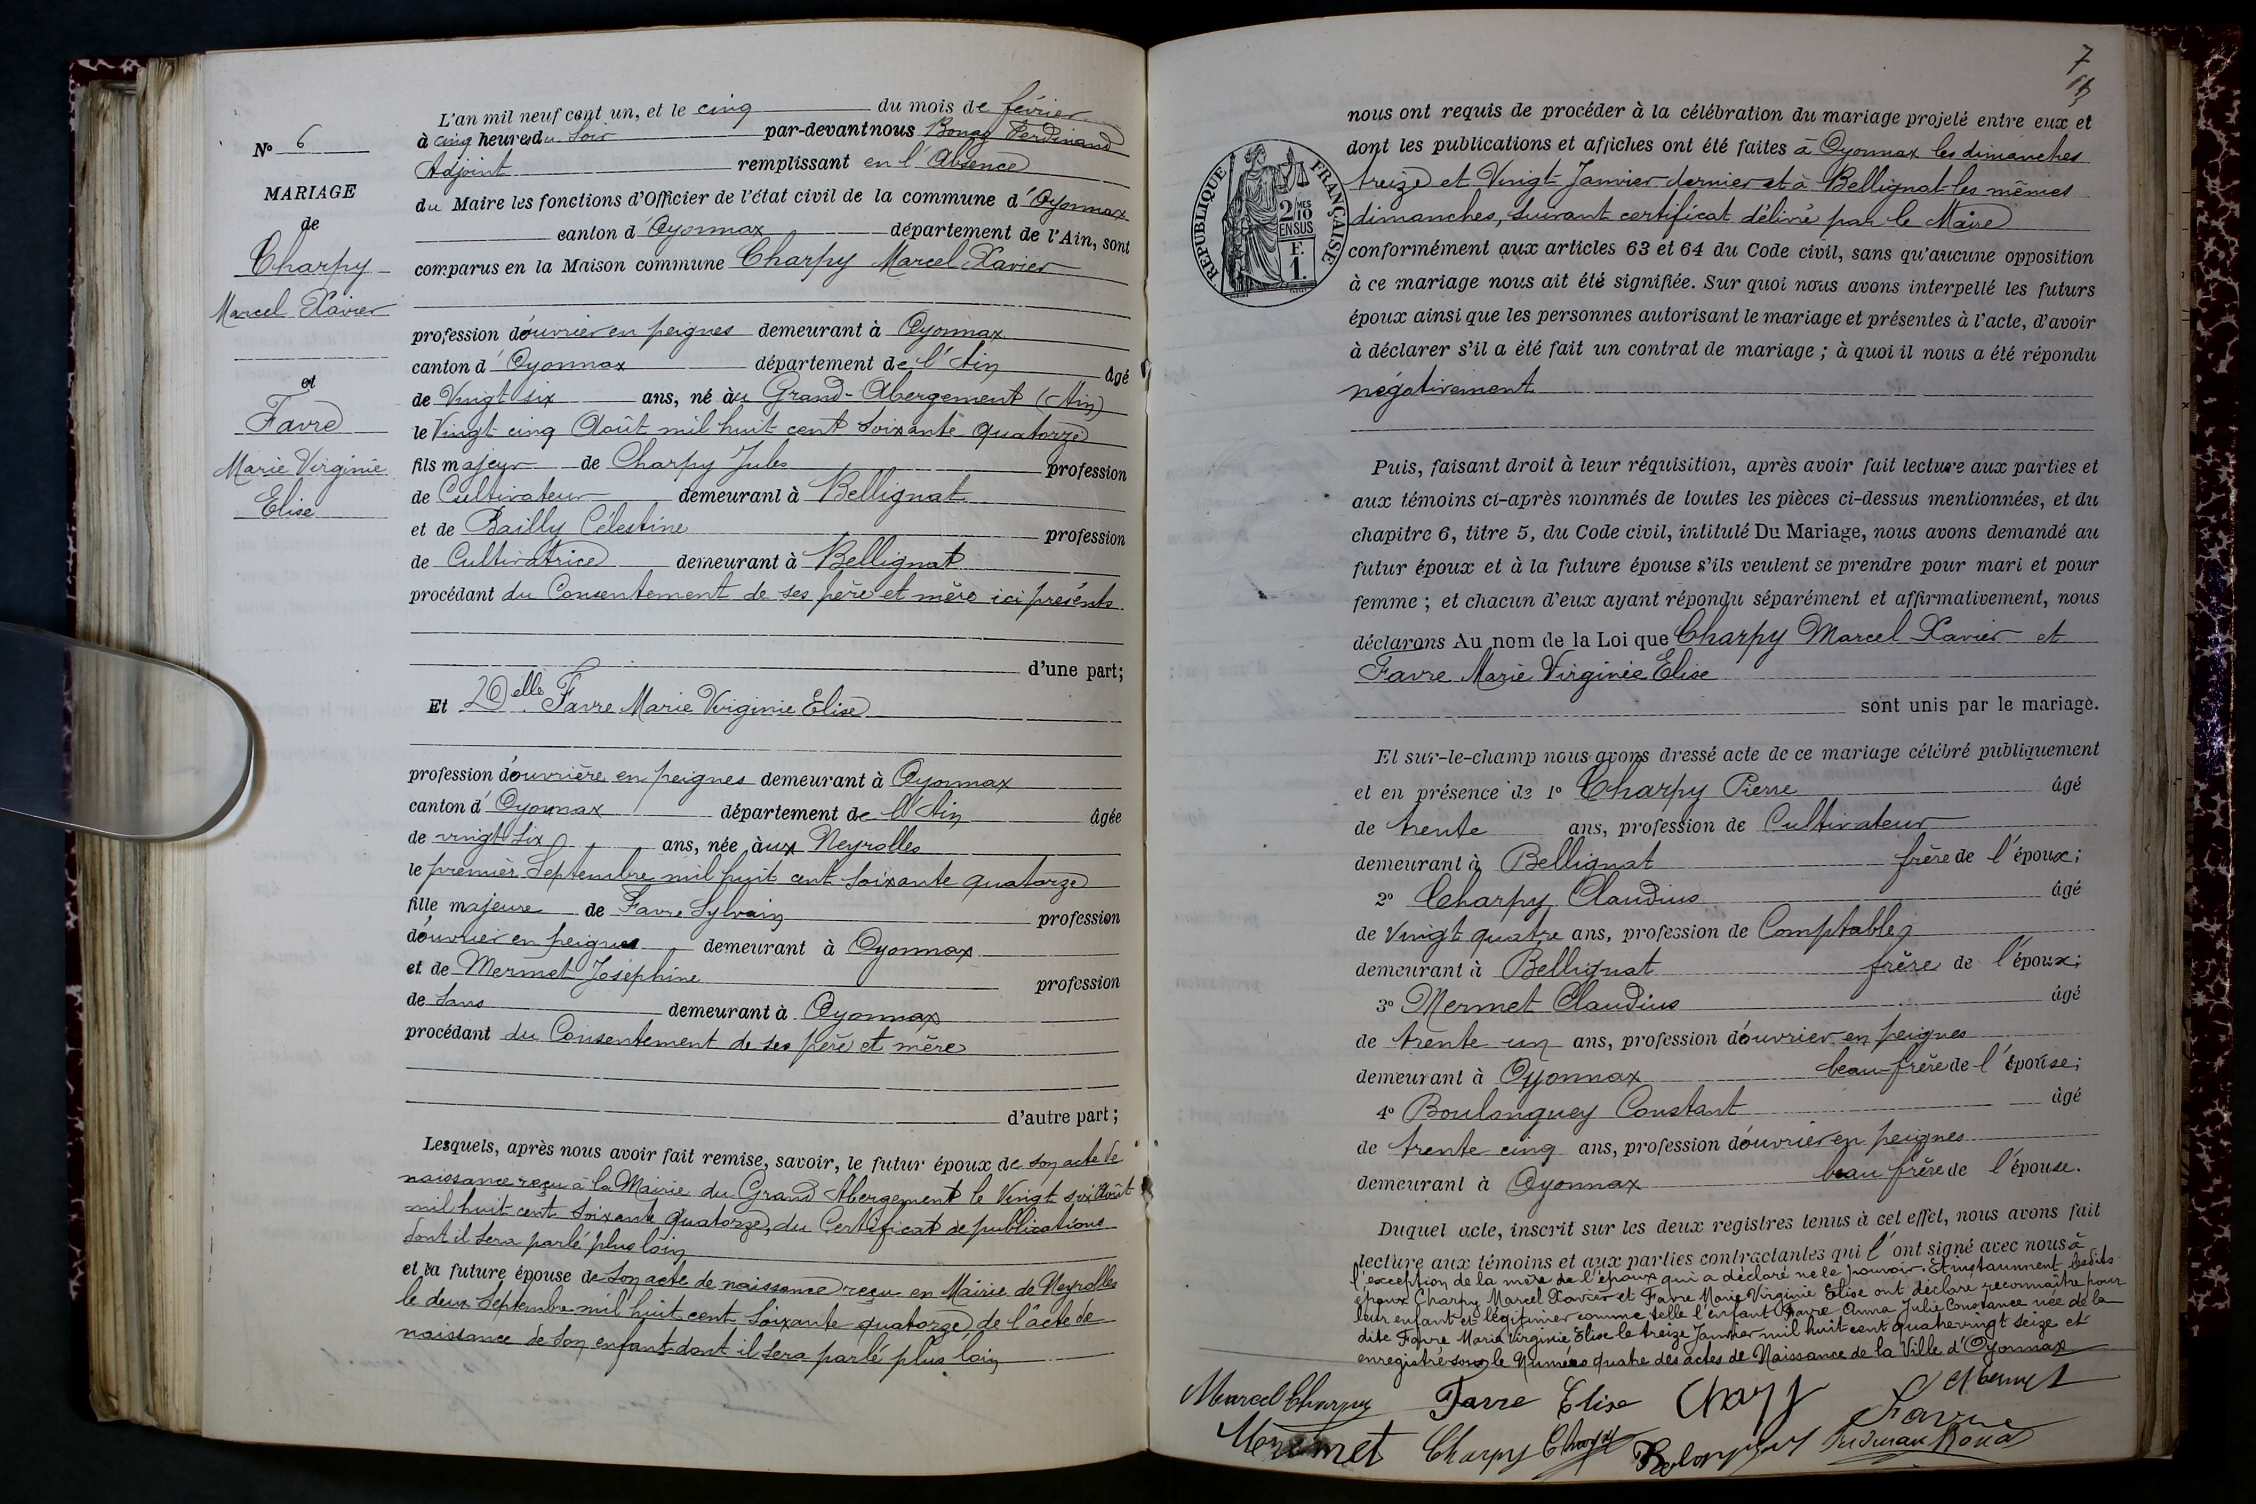 N° 6
MARIAGE
de
Charpy
Marcel Xavier
et
Favre
Marie Virginie
Elise
L'an mil neuf cent un, et le cinq du mois de février
à cinq heures du soir par-devant nous Bonaz Ferdinand
Adjoint remplissant en l'Absence
du Maire les fonctions d'Officier de l'état civil de la commune d'Oyonnax
canton d'Oyonnax département de l'Ain, sont
comparus en la Maison commune Charpy Marcel Xavier
profession d'ouvrier en peignes demeurant à Oyonnax
canton d'Oyonnax département de l'Ain âgé
de Vingt six ans, né au Grand-Abergement (Ain)
le Vingt cinq Août mil huit cent soixante quatorze
fils majeur de Charpy Jules profession
de Cultivateur demeurant à Bellignat
et de Bailly Célestine profession
de Cultivatrice demeurant à Bellignat
procédant du Consentement de ses père et mère ici présents
d'une part;
Et Delle Favre Marie Virginie Elise
profession d'ouvrière en peignes demeurant à Oyonnax
canton d'Oyonnax département de l'Ain âgée
de vingt six ans, née aux Neyrolles
le premier Septembre mil huit cent soixante quatorze
fille majeure de Favre Sylvain profession
d'ouvrier en peignes demeurant à Oyonnax
et de Mermet Joséphine profession
de sans demeurant à Oyonnax
procédant du Consentement de ses père et mère
d'autre part;
Lesquels, après nous avoir fait remise, savoir, le futur époux de son acte de
naissance reçu à la Mairie du Grand Abergement le Vingt six Août
mil huit cent soixante quatorze, du Certificat de publications
dont il sera parlé plus loin
et la future épouse de son acte de naissance reçu en Mairie de Neyrolles
le deux Septembre mil huit cent soixante quatorze, de l'acte de
naissance de son enfant dont il sera parlé plus loin
7
RÉPUBLIQUE FRANÇAISE
2 MES 10
EN SUS
F.
1.
nous ont requis de procéder à la célébration du mariage projeté entre eux et
dont les publications et affiches ont été faites à Oyonnax les dimanches
treize et Vingt Janvier dernier et à Bellignat les mêmes
dimanches, suivant certificat délivré par le Maire
conformément aux articles 63 et 64 du Code civil, sans qu'aucune opposition
à ce mariage nous ait été signifiée. Sur quoi nous avons interpellé les futurs
époux ainsi que les personnes autorisant le mariage et présentes à l'acte, d'avoir
à déclarer s'il a été fait un contrat de mariage; à quoi il nous a été répondu
négativement
Puis, faisant droit à leur réquisition, après avoir fait lecture aux parties et
aux témoins ci-après nommés de toutes les pièces ci-dessus mentionnées, et du
chapitre 6, titre 5, du Code civil, intitulé Du Mariage, nous avons demandé au
futur époux et à la future épouse s'ils veulent se prendre pour mari et pour
femme; et chacun d'eux ayant répondu séparément et affirmativement, nous
déclarons Au nom de la Loi que Charpy Marcel Xavier et
Favre Marie Virginie Elise
sont unis par le mariage.
Et sur-le-champ nous avons dressé acte de ce mariage célébré publiquement
et en présence de 1° Charpy Pierre âgé
de trente ans, profession de Cultivateur
demeurant à Bellignat frère de l'époux;
2° Charpy Claudius âgé
de Vingt quatre ans, profession de Comptable
demeurant à Bellignat frère de l'époux;
3° Mermet Claudius âgé
de trente un ans, profession d'ouvrier en peignes
demeurant à Oyonnax beau-frère de l'épouse;
4° Boulonguey Constant âgé
de trente cinq ans, profession d'ouvrier en peignes
demeurant à Oyonnax beau frère de l'épouse.
Duquel acte, inscrit sur les deux registres tenus à cet effet, nous avons fait
lecture aux témoins et aux parties contractantes qui l'ont signé avec nous à
l'exception de la mère de l'époux qui a déclaré ne le pouvoir. Et instamment lesdits
époux Charpy Marcel Xavier et Favre Marie Virginie Elise ont déclaré reconnaître pour
leur enfant et légitimer comme telle l'enfant Favre Anna Julie Constance née de la
dite Favre Marie Virginie Elise le treize Janvier mil huit cent quatrevingt seize et
enregistré sous le Numéro quatre des actes de Naissance de la Ville d'Oyonnax
Marcel Charpy Favre Elise Charpy Mermet
Mermet Charpy Charpy Favre